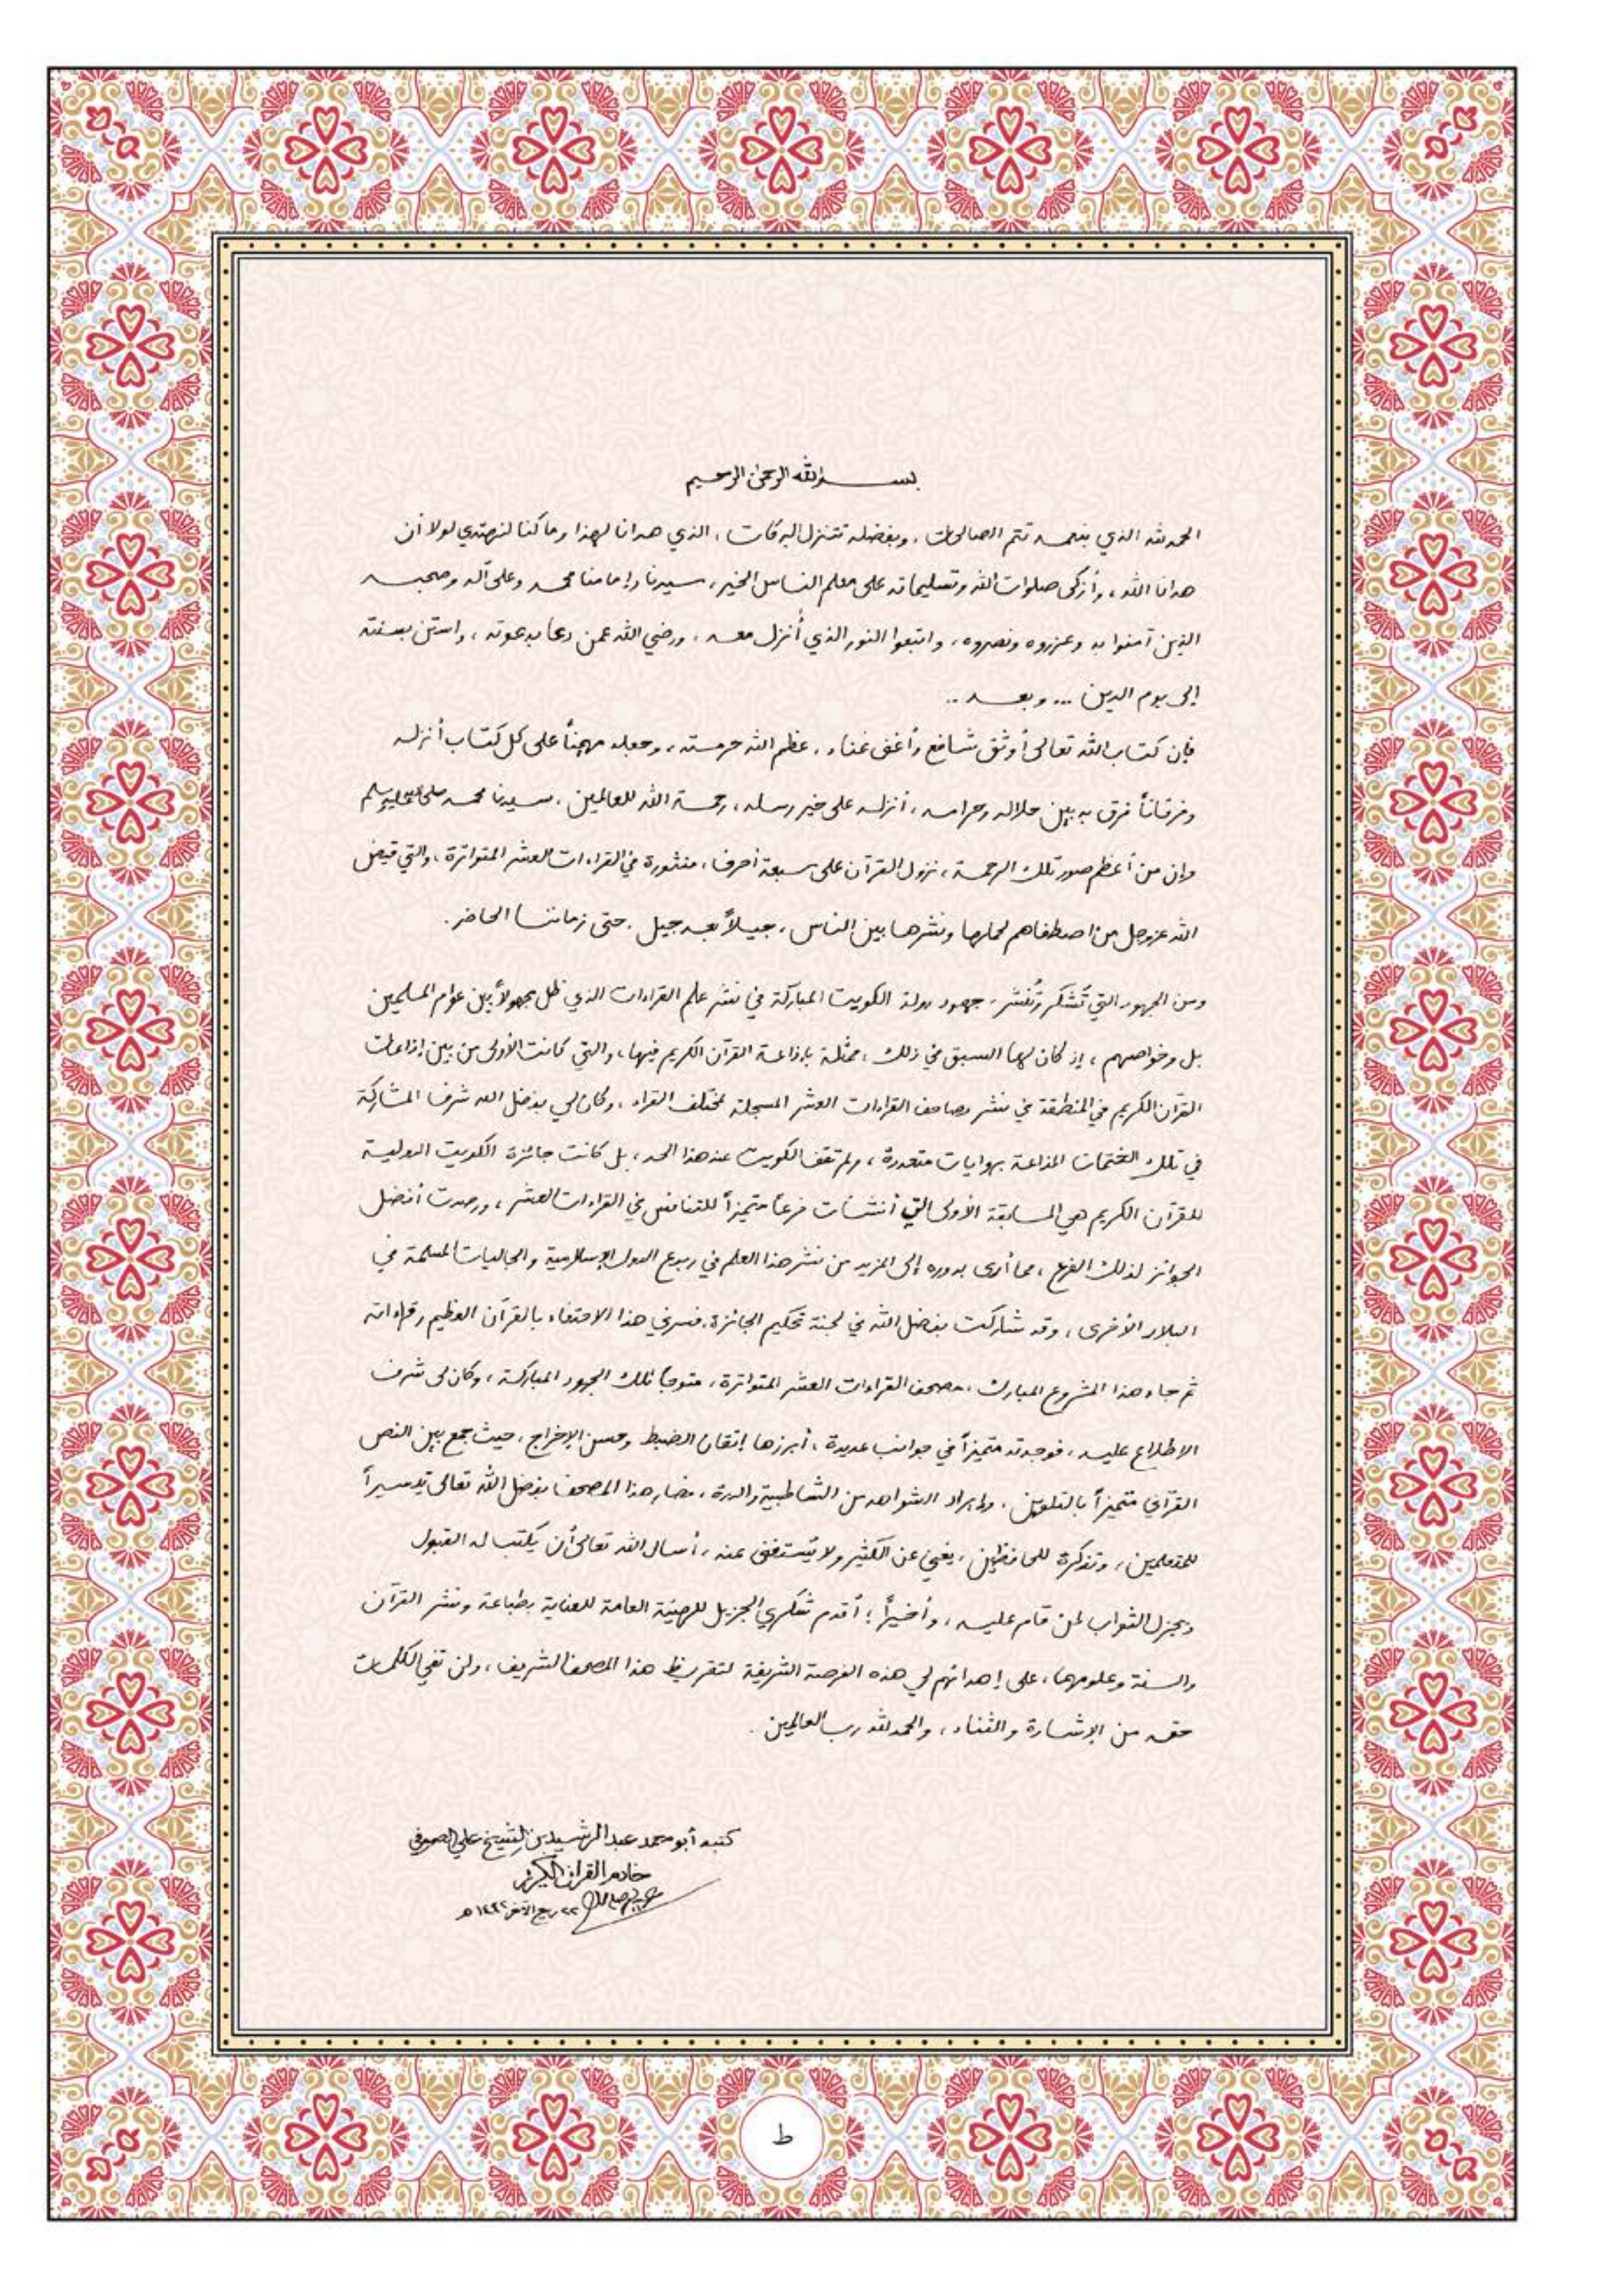 بسم الله الرحمن الرحيم
الحمد لله الذي بنعمته تتم الصالحات ، وبفضله تتنزل البركات ، الذي هدانا لهذا وما كنا لنهتدي لولا أن
هدانا الله ، وأزكى صلوات الله وتسليماته على معلم الناس الخير ، سيدنا وإمامنا محمد وعلى آله وصحبه
الذين آمنوا به وعزروه ونصروه ، واتبعوا النور الذي أُنزل معه ، ورضي الله عمن دعا بدعوته ، واستن بسنته
إلى يوم الدين ... وبعد ..
فإن كتاب الله تعالى أوثق شافع وأغنى غناء ، عظم الله حرمته ، وجعله مهيمناً على كل كتاب أنزله
وفرقاناً فرق به بين حلاله وحرامه ، أنزله على خير رسله ، رحمة الله للعالمين ، سيدنا محمد صلى الله عليه وسلم
وإن من أعظم صور تلك الرحمة ، نزول القرآن على سبعة أحرف ، منثورة في القراءات العشر المتواترة ، والتي قيض
الله عزوجل من اصطفاهم لحملها ونشرها بين الناس ، جيلاً بعد جيل . حتى زماننا الحاضر .
ومن الجهود التي تُشكر وتُنشر ، جهود دولة الكويت المباركة في نشر علم القراءات الذي ظل مجهولاً بين عوام المسلمين
بل وخواصهم ، إذ كان لها السبق في ذلك ، ممثلة بإذاعة القرآن الكريم فيها ، والتي كانت الأولى من بين إذاعات
القرآن الكريم في المنطقة في نشر مصاحف القراءات العشر المسجلة لمختلف القراء ، وكان لي بفضل الله شرف المشاركة
في تلك الختمات المذاعة بروايات متعددة ، ولم تقف الكويت عند هذا الحد ، بل كانت جائزة الكويت الدولية
للقرآن الكريم هي المسابقة الأولى التي أنشأت فرعاً متميزاً للتنافس في القراءات العشر ، ورصدت أفضل
الجوائز لذلك الفرع ، مما أدى بدوره إلى المزيد من نشر هذا العلم في ربوع الدول الإسلامية والجاليات المسلمة في
البلاد الأخرى ، وقد شاركت بفضل الله في لجنة تحكيم الجائزة ، فسرني هذا الاحتفاء بالقرآن العظيم وقراءاته
ثم جاء هذا المشروع المبارك ، مصحف القراءات العشر المتواترة ، متوجاً تلك الجهود المباركة ، وكان لي شرف
الاطلاع عليه ، فوجدته متميزاً في جوانب عديدة ، أبرزها إتقان الضبط وحسن الإخراج ، حيث جمع بين النص
القرآني متميزاً بالتلوين ، وإيراد الشواهد من الشاطبية والدرة ، فصار هذا المصحف بفضل الله تعالى تيسيراً
للمتعلمين ، وتذكرة للحافظين ، يغني عن الكثير ولا يُستغنى عنه ، أسأل الله تعالى أن يكتب له القبول
ويجزل الثواب لمن قام عليه ، وأخيراً ؛ أقدم شكري الجزيل للهيئة العامة للعناية بطباعة ونشر القرآن
والسنة وعلومهما ، على إهدائهم لي هذه الفرصة الشريفة لتقريظ هذا المصحف الشريف ، ولن تفي الكلمات
حقه من الإشادة والثناء ، والحمد لله رب العالمين .
كتبه أبو محمد عبد الرشيد بن الشيخ علي الصوفي
خادم القرآن الكريم
٢٢ ربيع الآخر ١٤٤٢ هـ
ط